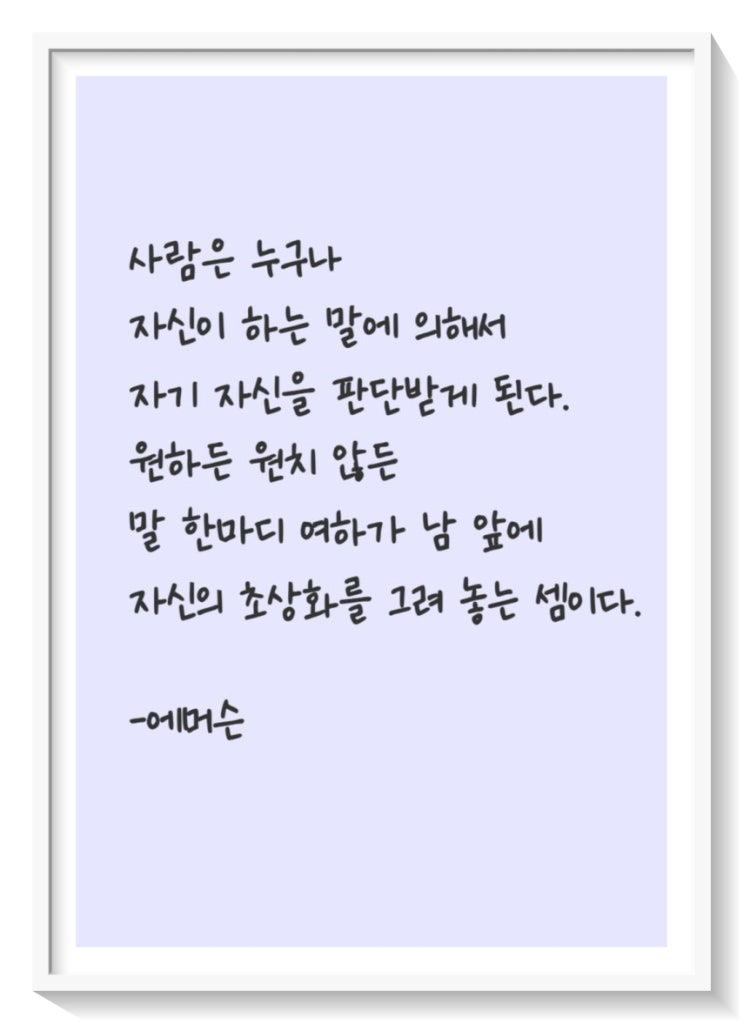 사람은 누구나
자신이 하는 말에 의해서
자기 자신을 판단받게 된다.
원하든 원치 않든
말 한마디 여하가 남 앞에
자신의 초상화를 그려 놓는 셈이다.
-에머슨